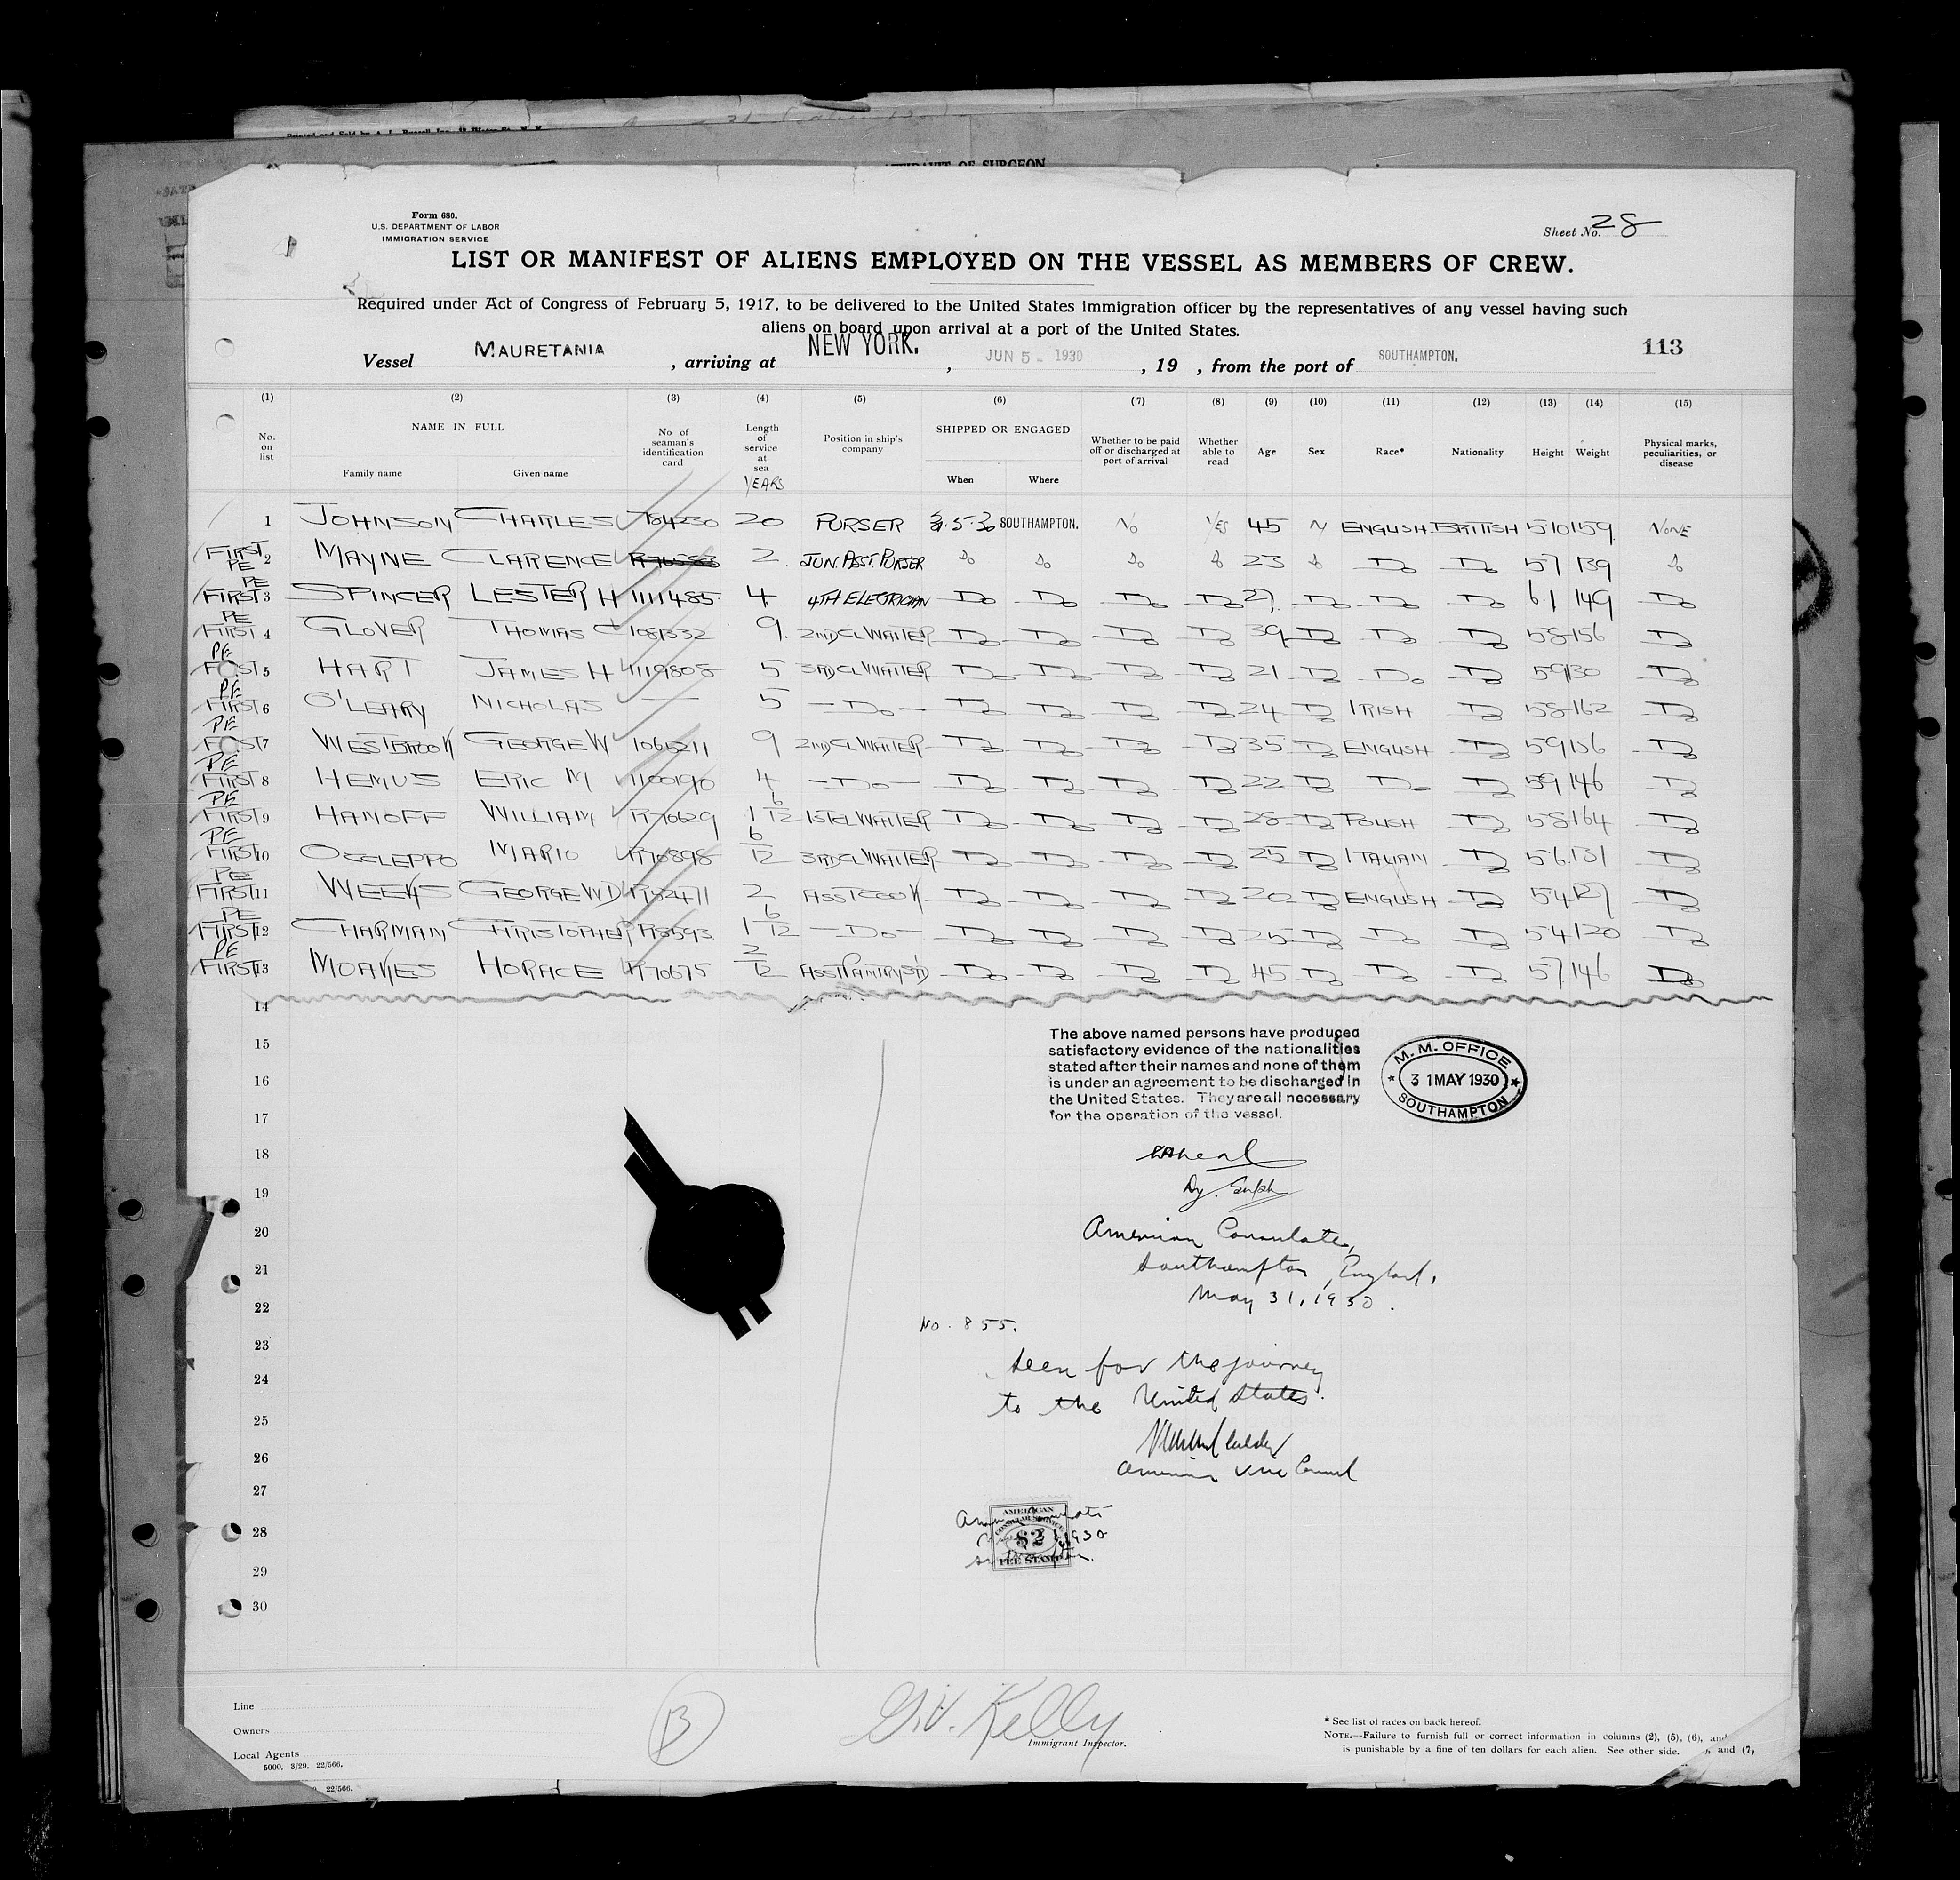 Form 680.
U.S. DEPARTMENT OF LABOR
IMMIGRATION SERVICE
Sheet No. 28
LIST OR MANIFEST OF ALIENS EMPLOYED ON THE VESSEL AS MEMBERS OF CREW.
Required under Act of Congress of February 5, 1917, to be delivered to the United States immigration officer by the representatives of any vessel having such
aliens on board upon arrival at a port of the United States.
Vessel MAURETANIA, arriving at NEW YORK., JUN 5 - 1930, 19 , from the port of SOUTHAMPTON. 113
(1) (2) (3) (4) (5) (6) (7) (8) (9) (10) (11) (12) (13) (14) (15)
No. on list NAME IN FULL Family name Given name No of seaman's identification card Length of service at sea YEARS Position in ship's company SHIPPED OR ENGAGED When Where Whether to be paid off or discharged at port of arrival Whether able to read Age Sex Race* Nationality Height Weight Physical marks, peculiarities, or disease
1 JOHNSON CHARLES 784230 20 PURSER SOUTHAMPTON. NO YES 45 ENGLISH BRITISH 510 159 NONE
FIRST PE 2 MAYNE CLARENCE 2 JUN. ASST. PURSER Do Do Do Do 23 Do Do Do 57 139 Do
FIRST PE 3 SPINCER LESTER H 1111485 4 4TH ELECTRICIAN Do Do Do Do 27 Do Do Do 6.1 149 Do
FIRST PE 4 GLOVER THOMAS C 1081332 9. 2ND CL WAITER Do Do Do Do 39 Do Do Do 58 156 Do
PE 5 HART JAMES H 1119808 5 3RD CL WAITER Do Do Do Do 21 Do Do Do 59 130 Do
FIRST PE 6 O'LEARY NICHOLAS — 5 — Do — Do Do Do Do 24 Do IRISH Do 58 162 Do
PE 7 WESTBROOK GEORGE W 1065211 9 2ND CL WAITER Do Do Do Do 35 Do ENGLISH Do 59 136 Do
FIRST PE 8 HEMUS ERIC M 1100190 4 — Do — Do Do Do Do 22 Do Do Do 59 146 Do
FIRST PE 9 HANOFF WILLIAM R70629 1 6/12 1ST CL WAITER Do Do Do Do 28 Do POLISH Do 58 164 Do
FIRST PE 10 OCCLEPPO MARIO R70898 6/12 3RD CL WAITER Do Do Do Do 25 Do ITALIAN Do 56 131 Do
FIRST PE 11 WEEKS GEORGE W D R52471 2 ASST COOK Do Do Do Do 20 Do ENGLISH Do 54 127 Do
FIRST PE 12 CHARMAN CHRISTOPHER 1 6/12 — Do — Do Do Do Do 25 Do Do Do 54 120 Do
FIRST PE 13 MOAKES HORACE R70675 2/12 ASST PANTRY STD Do Do Do Do 45 Do Do Do 57 146 Do
14
15
16
17
18
19
20
21
22
23
24
25
26
27
28
29
30
The above named persons have produced
satisfactory evidence of the nationalities
stated after their names and none of them
is under an agreement to be discharged in
the United States. They are all necessary
for the operation of the vessel.
M. M. OFFICE
31 MAY 1930
SOUTHAMPTON
Dy. Supt
American Consulate,
Southampton, England,
May 31, 1930.
No. 855.
Seen for the journey
to the United States.
American Vice Consul
AMERICAN
CONSULAR SERVICE
$2
FEE STAMP
1930
Line
Owners
Local Agents
5000. 3/29. 22/566.
22/566.
B
G.V. Kelly
Immigrant Inspector.
* See list of races on back hereof.
NOTE.—Failure to furnish full or correct information in columns (2), (5), (6), and
is punishable by a fine of ten dollars for each alien. See other side.
and (7),